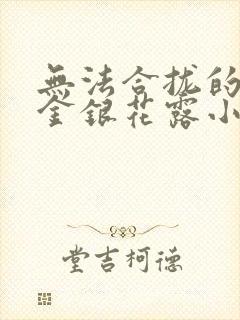 無法合拢的
金銀花露小
堂吉柯德